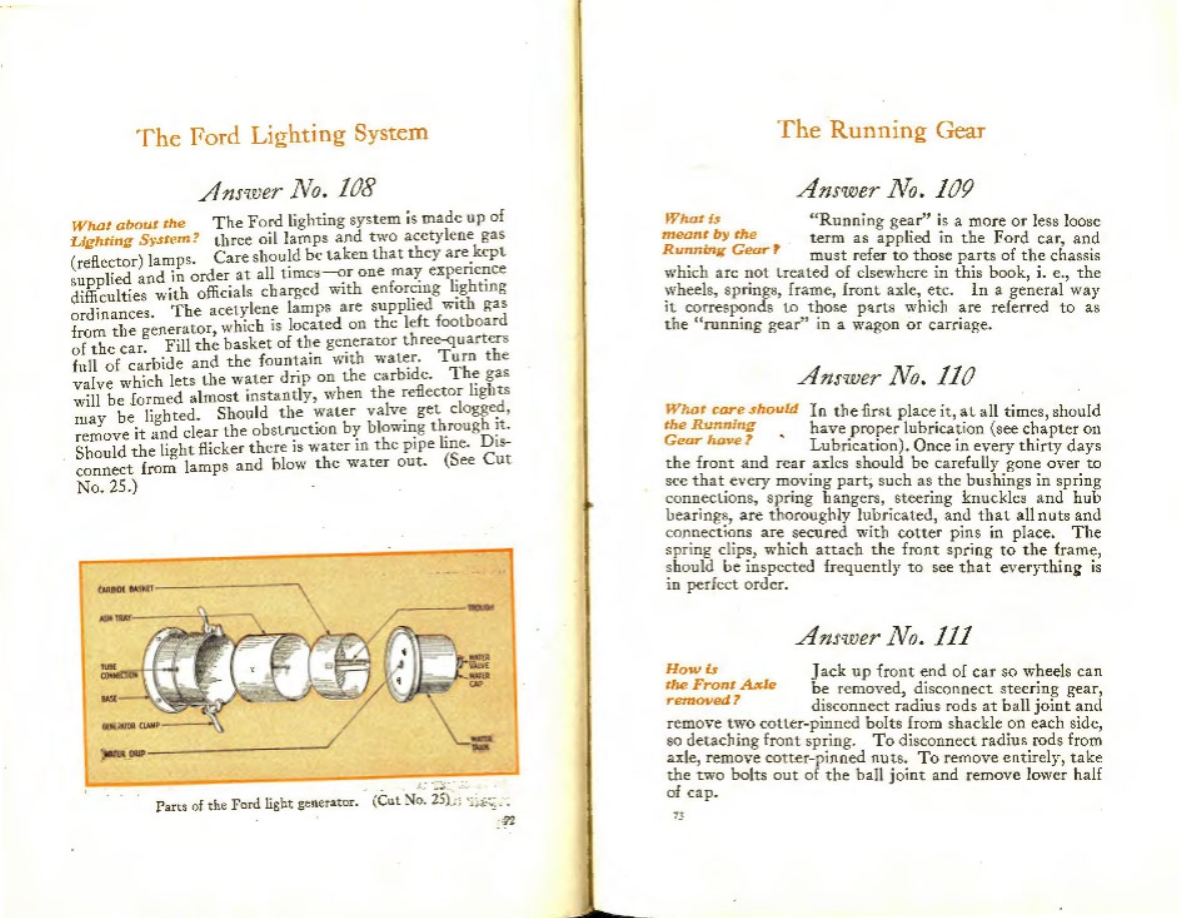 The Ford Lighting System
Answer No. 108
What about the
Lighting System?
The Ford lighting system is made up of
three oil lamps and two acetylene gas
(reflector) lamps. Care should be taken that they are kept
supplied and in order at all times—or one may experience
difficulties with officials charged with enforcing lighting
ordinances. The acetylene lamps are supplied with gas
from the generator, which is located on the left footboard
of the car. Fill the basket of the generator three-quarters
full of carbide and the fountain with water. Turn the
valve which lets the water drip on the carbide. The gas
will be formed almost instantly, when the reflector lights
may be lighted. Should the water valve get clogged,
remove it and clear the obstruction by blowing through it.
Should the light flicker there is water in the pipe line. Dis-
connect from lamps and blow the water out. (See Cut
No. 25.)
CARBIDE BASKET
ASH TRAY
TUBE
CONNECTION
BASE
GENERATOR CLAMP
WATER DRIP
TROUGH
WATER
VALVE
WATER
CAP
WATER
TANK
Parts of the Ford light generator. (Cut No. 25)
72
The Running Gear
Answer No. 109
What is
meant by the
Running Gear?
“Running gear” is a more or less loose
term as applied in the Ford car, and
must refer to those parts of the chassis
which are not treated of elsewhere in this book, i. e., the
wheels, springs, frame, front axle, etc. In a general way
it corresponds to those parts which are referred to as
the “running gear” in a wagon or carriage.
Answer No. 110
What care should
the Running
Gear have?
In the first place it, at all times, should
have proper lubrication (see chapter on
Lubrication). Once in every thirty days
the front and rear axles should be carefully gone over to
see that every moving part, such as the bushings in spring
connections, spring hangers, steering knuckles and hub
bearings, are thoroughly lubricated, and that all nuts and
connections are secured with cotter pins in place. The
spring clips, which attach the front spring to the frame,
should be inspected frequently to see that everything is
in perfect order.
Answer No. 111
How is
the Front Axle
removed?
Jack up front end of car so wheels can
be removed, disconnect steering gear,
disconnect radius rods at ball joint and
remove two cotter-pinned bolts from shackle on each side,
so detaching front spring. To disconnect radius rods from
axle, remove cotter-pinned nuts. To remove entirely, take
the two bolts out of the ball joint and remove lower half
of cap.
73